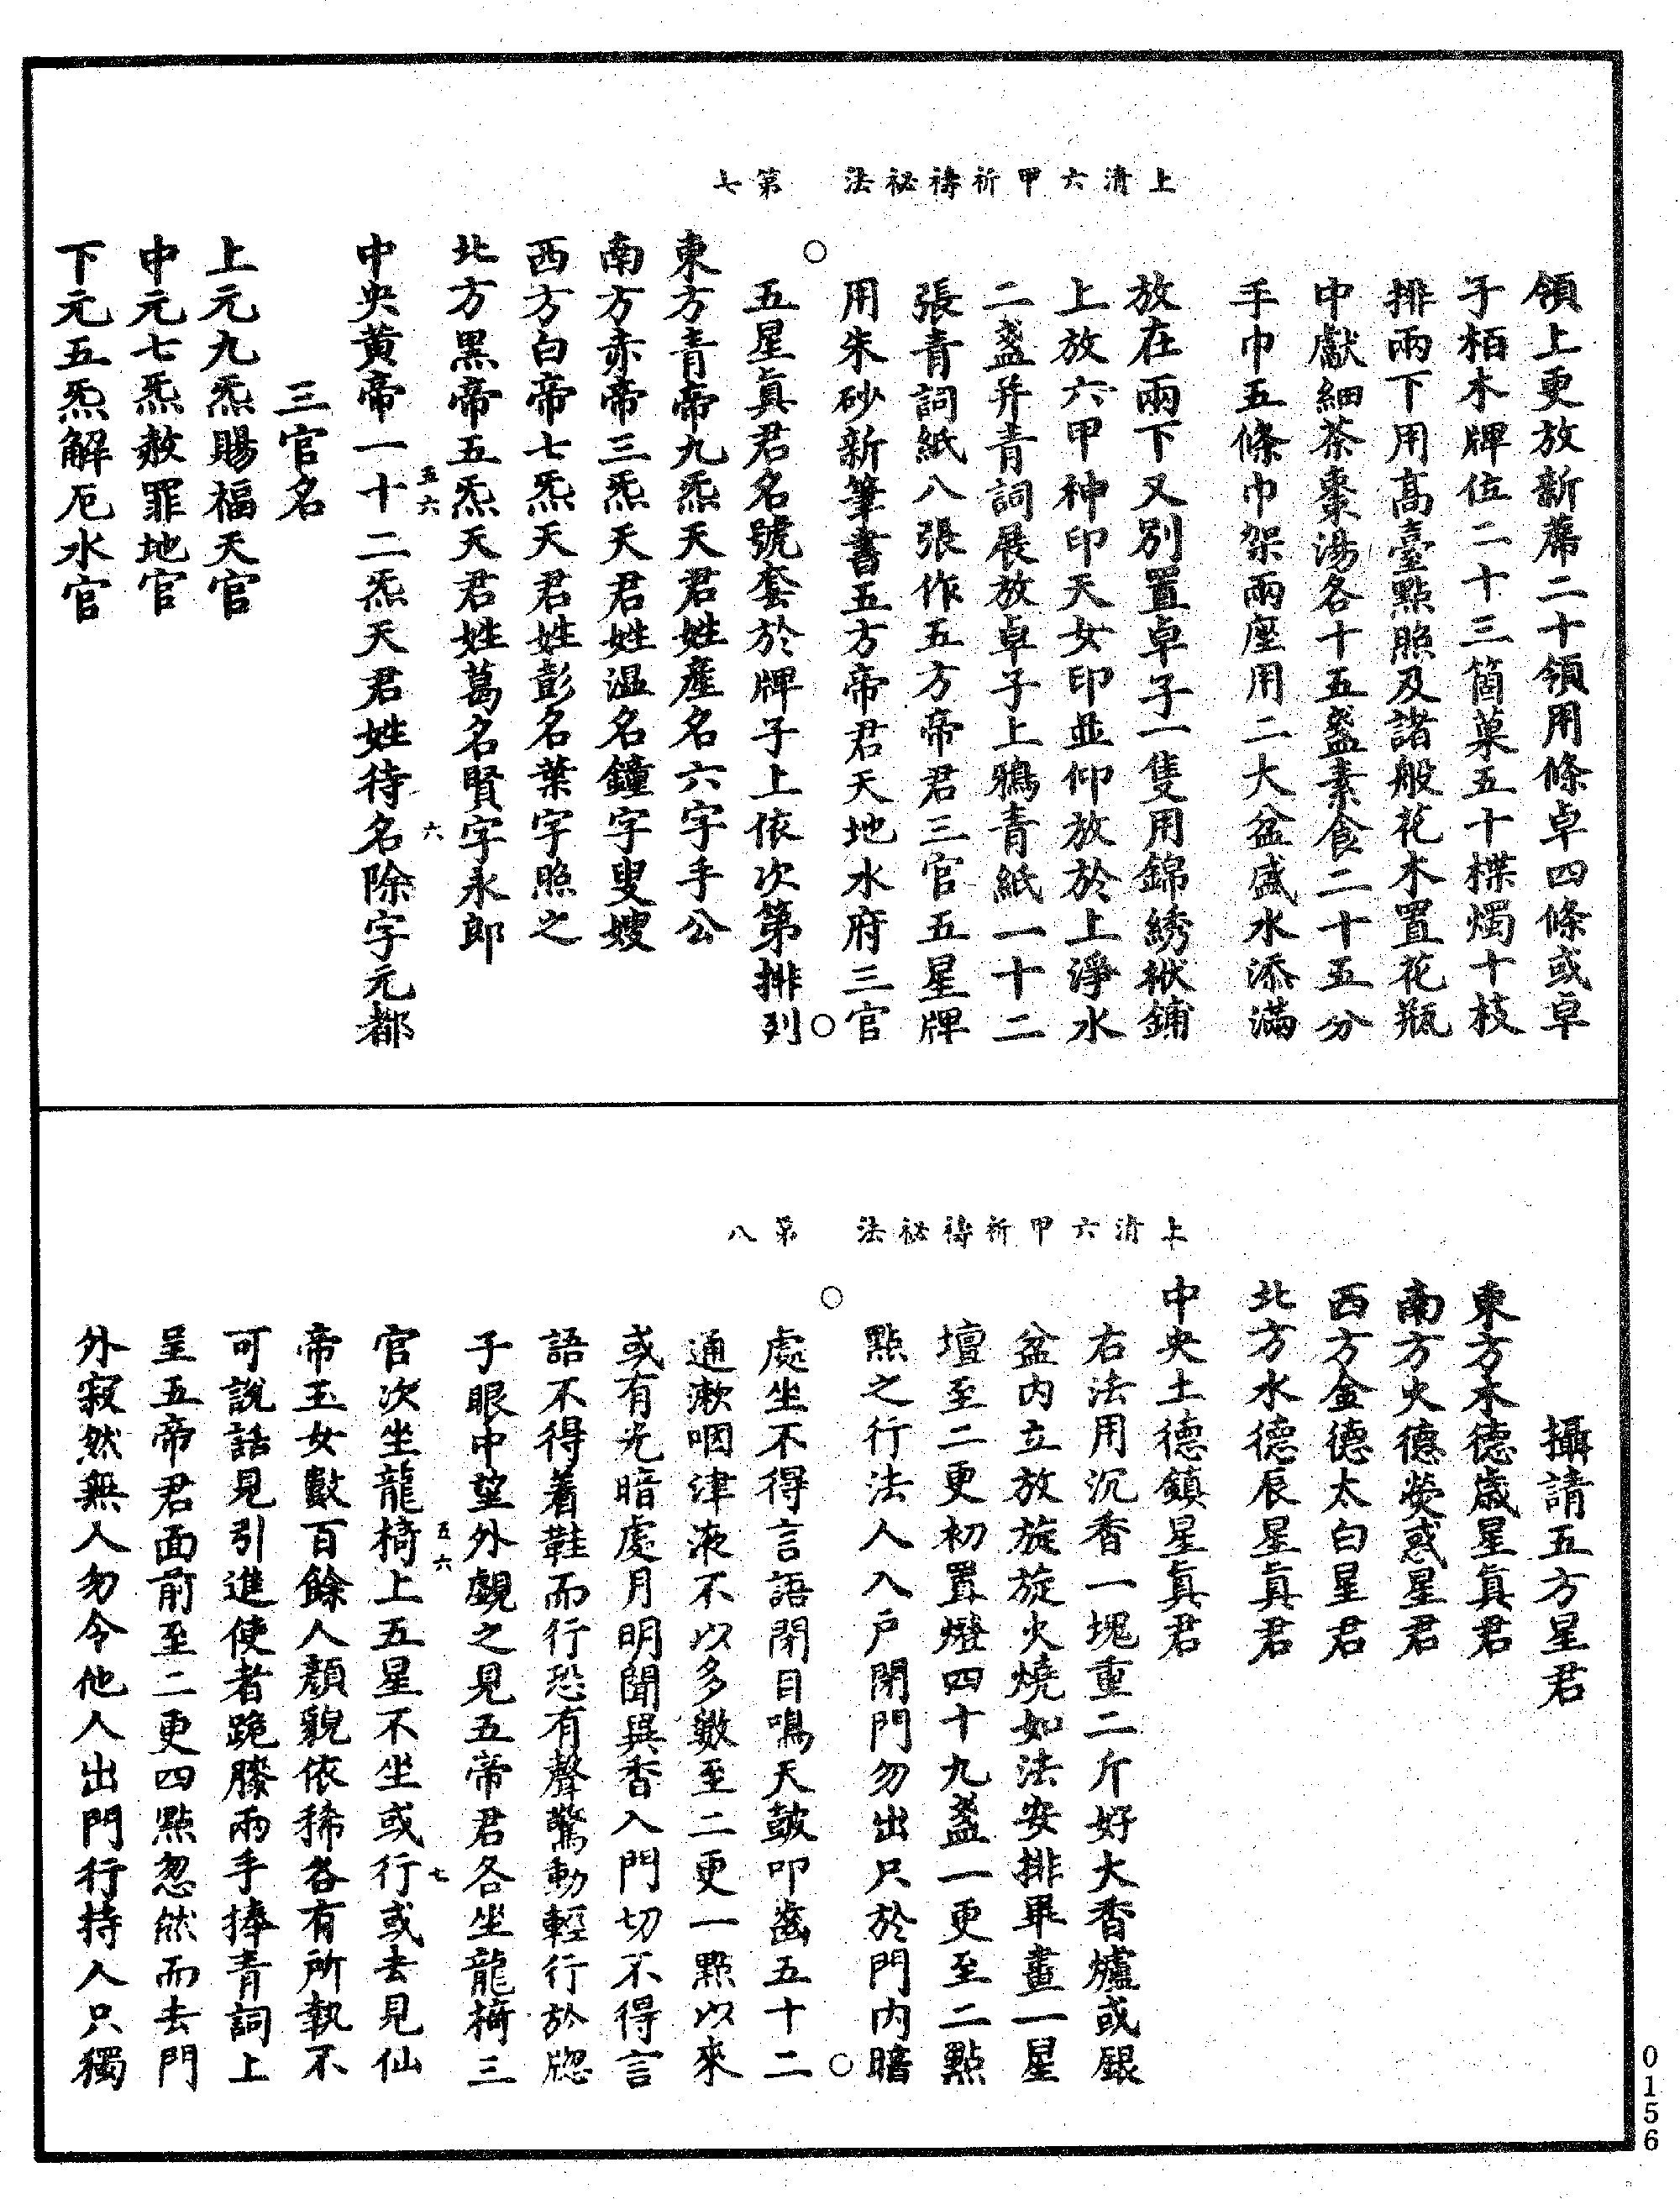 上清六甲祈禱祕法　第七
領上更放新蓆二十領用條卓四條或卓
子栢木牌位二十三箇菓五十楪燭十枝
排兩下用高臺點照及諸般花木置花瓶
中獻細茶棗湯各十五盞素食二十五分
手巾五條巾架兩座用二大盆盛水添滿
放在兩下又別置卓子一隻用錦綉袱鋪
上放六甲神印天女印並仰放於上淨水
二盞并青詞展放卓子上鴉青紙一十二
張青詞紙八張作五方帝君三官五星牌
用朱砂新筆書五方帝君天地水府三官
五星眞君名號套於牌子上依次第排列
東方青帝九炁天君姓產名六字手公
南方赤帝三炁天君姓温名鐘字叟嫂
西方白帝七炁天君姓彭名葉字照之
北方黑帝五炁天君姓葛名賢字永郎
五六　六
中央黃帝一十二炁天君姓待名除字元都
三官名
上元九炁賜福天官
中元七炁赦罪地官
下元五炁解厄水官
上清六甲祈禱祕法　第八
攝請五方星君
東方木德歲星眞君
南方火德熒惑星君
西方金德太白星君
北方水德辰星眞君
中央土德鎮星眞君
右法用沉香一塊重二斤好大香爐或銀
盆内立放旋旋火燒如法安排畢畫一星
壇至二更初置燈四十九盞一更至二點
點之行法人入戶閉門勿出只於門内暗
處坐不得言語閉目鳴天皷叩齒五十二
通漱咽津液不以多數至二更一點以來
或有光暗處月明聞異香入門切不得言
語不得着鞋而行恐有聲驚動輕行於牎
子眼中望外覷之見五帝君各坐龍椅三
五六　七
官次坐龍椅上五星不坐或行或去見仙
帝玉女數百餘人顏貌依稀各有所執不
可說話見引進使者跪膝兩手捧青詞上
呈五帝君面前至二更四點忽然而去門
外寂然無人勿令他人出門行持人只獨
0156